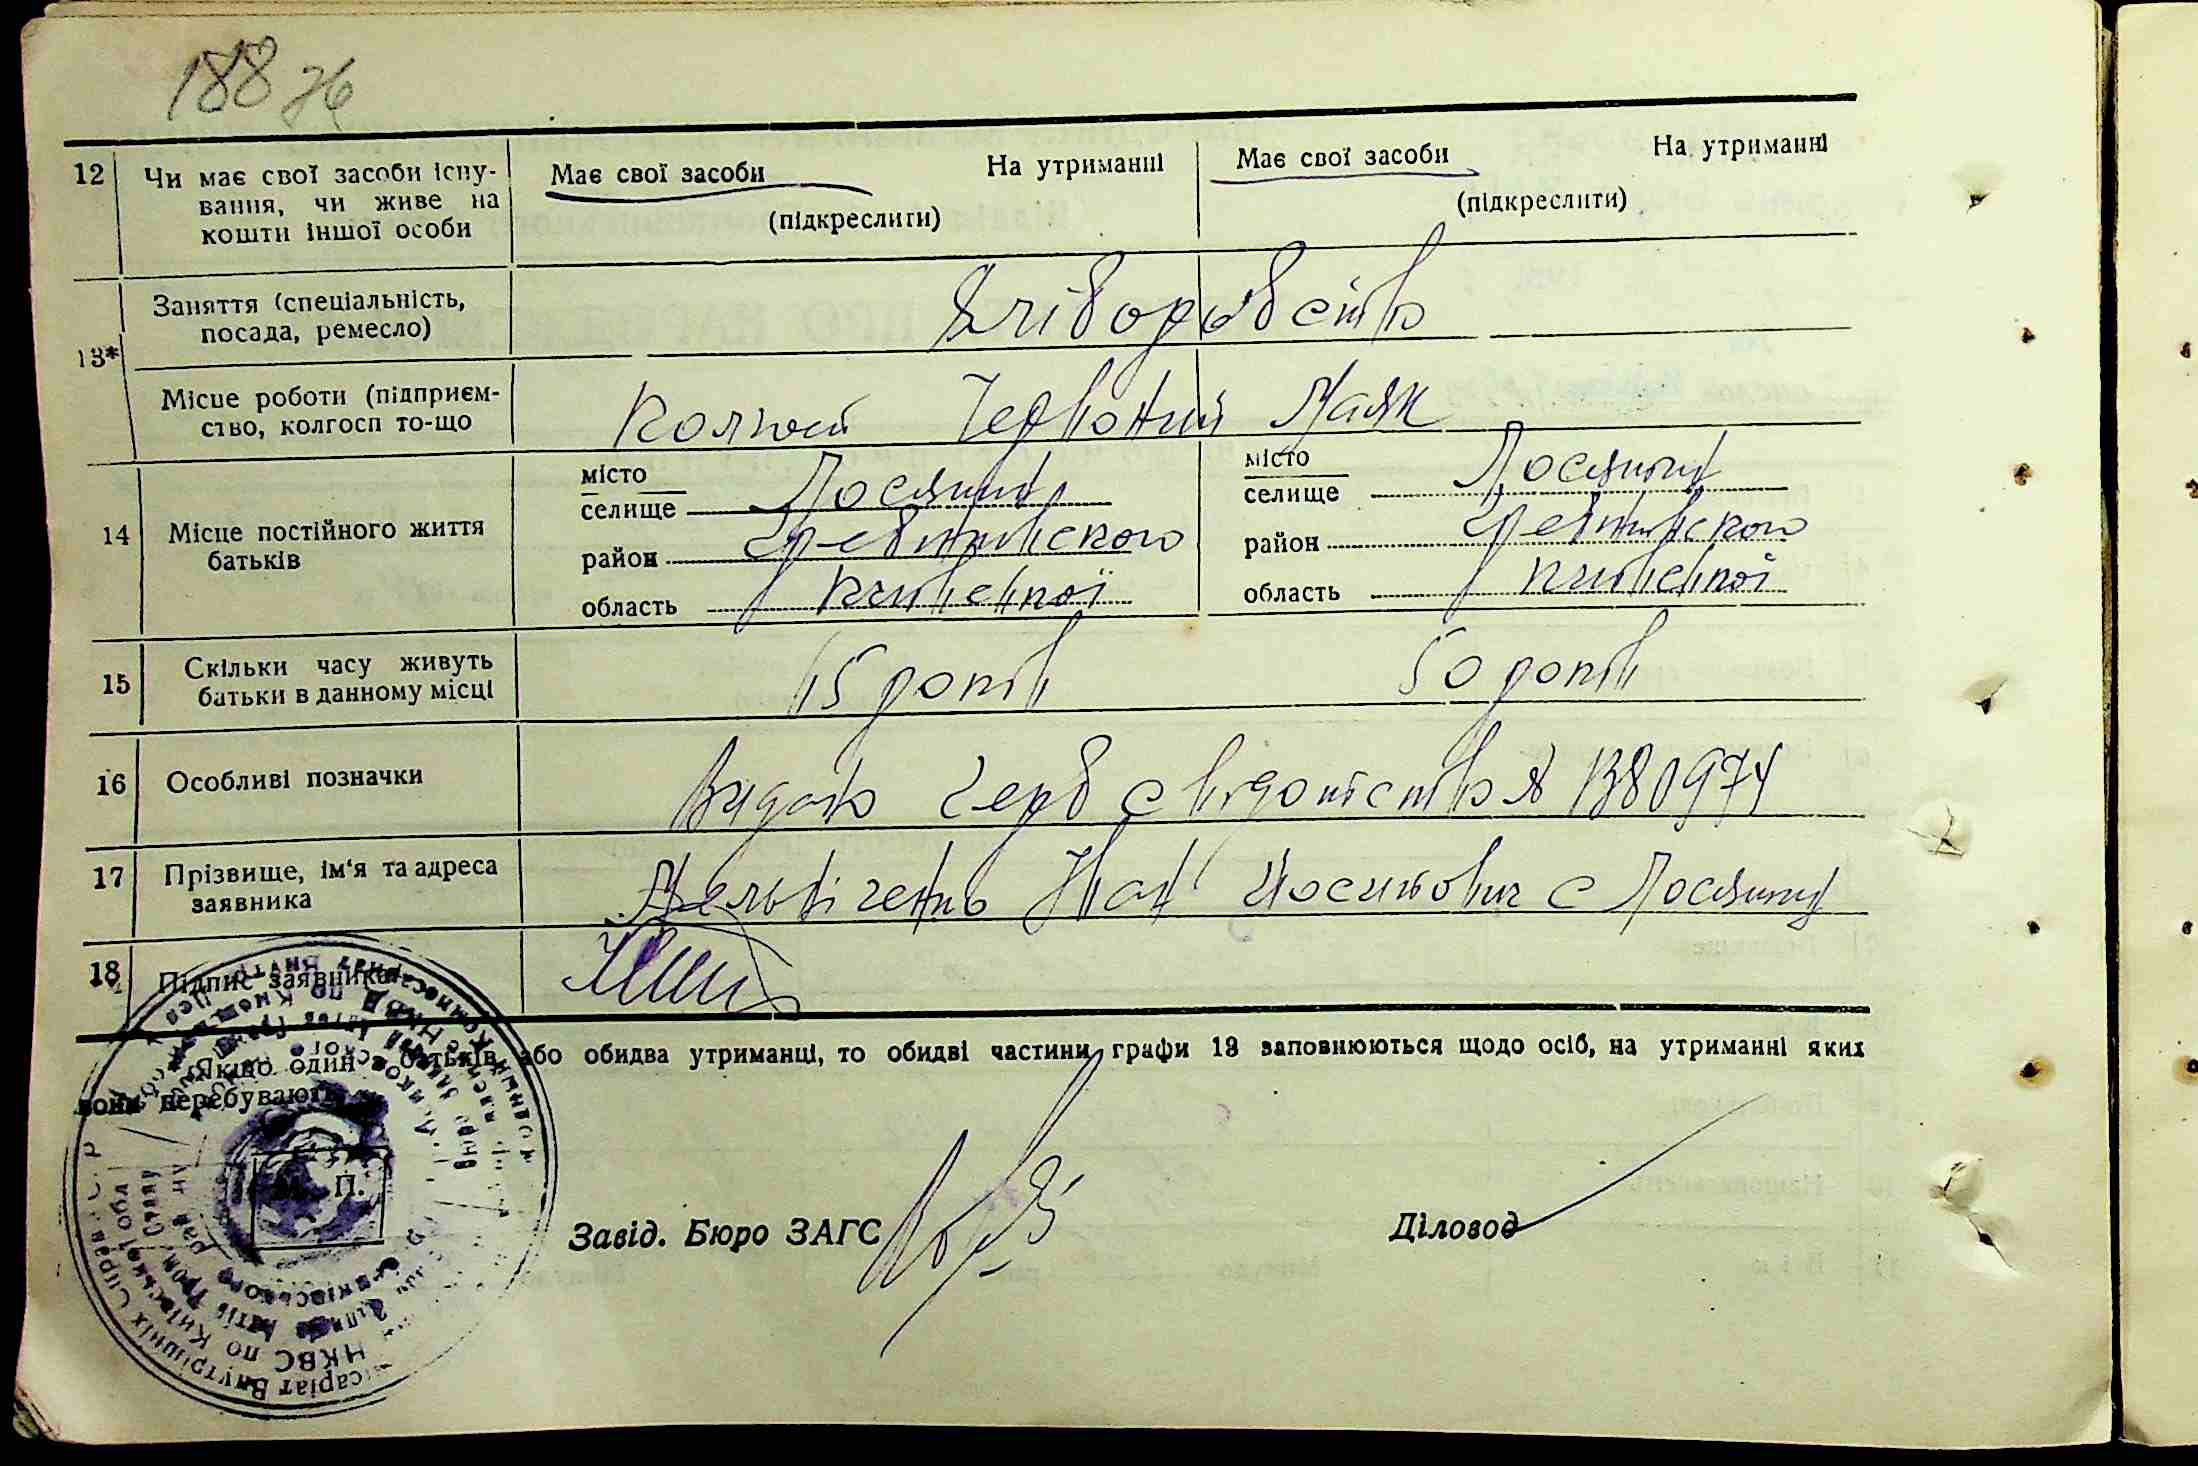 188 зв
12 Чи має свої засоби існу- Має свої засоби На утриманні Має свої засоби На утриманні
вання, чи живе на (підкреслити) (підкреслити)
кошти іншої особи
13* Заняття (спеціальність, Хліборобство
посада, ремесло)
Місце роботи (підприєм- Колгосп Червоний Маяк
ство, колгосп то-що
14 Місце постійного життя місто місто
батьків селище Лосятин селище Лосятин
район Гребінківского район Гребінківского
область Київської область Київської
15 Скільки часу живуть 45 років 50 років
батьки в данному місці
16 Особливі позначки Видано Герб свідоцтво № 1380974
17 Прізвище, ім'я та адреса Іван Йосипович с Лосятин
заявника
18 Підпис заявника
Якщо один з батьків або обидва утриманці, то обидві частини графи 13 заповнюються щодо осіб, на утриманні яких
вони перебувають.
М. П.
Завід. Бюро ЗАГС Діловод